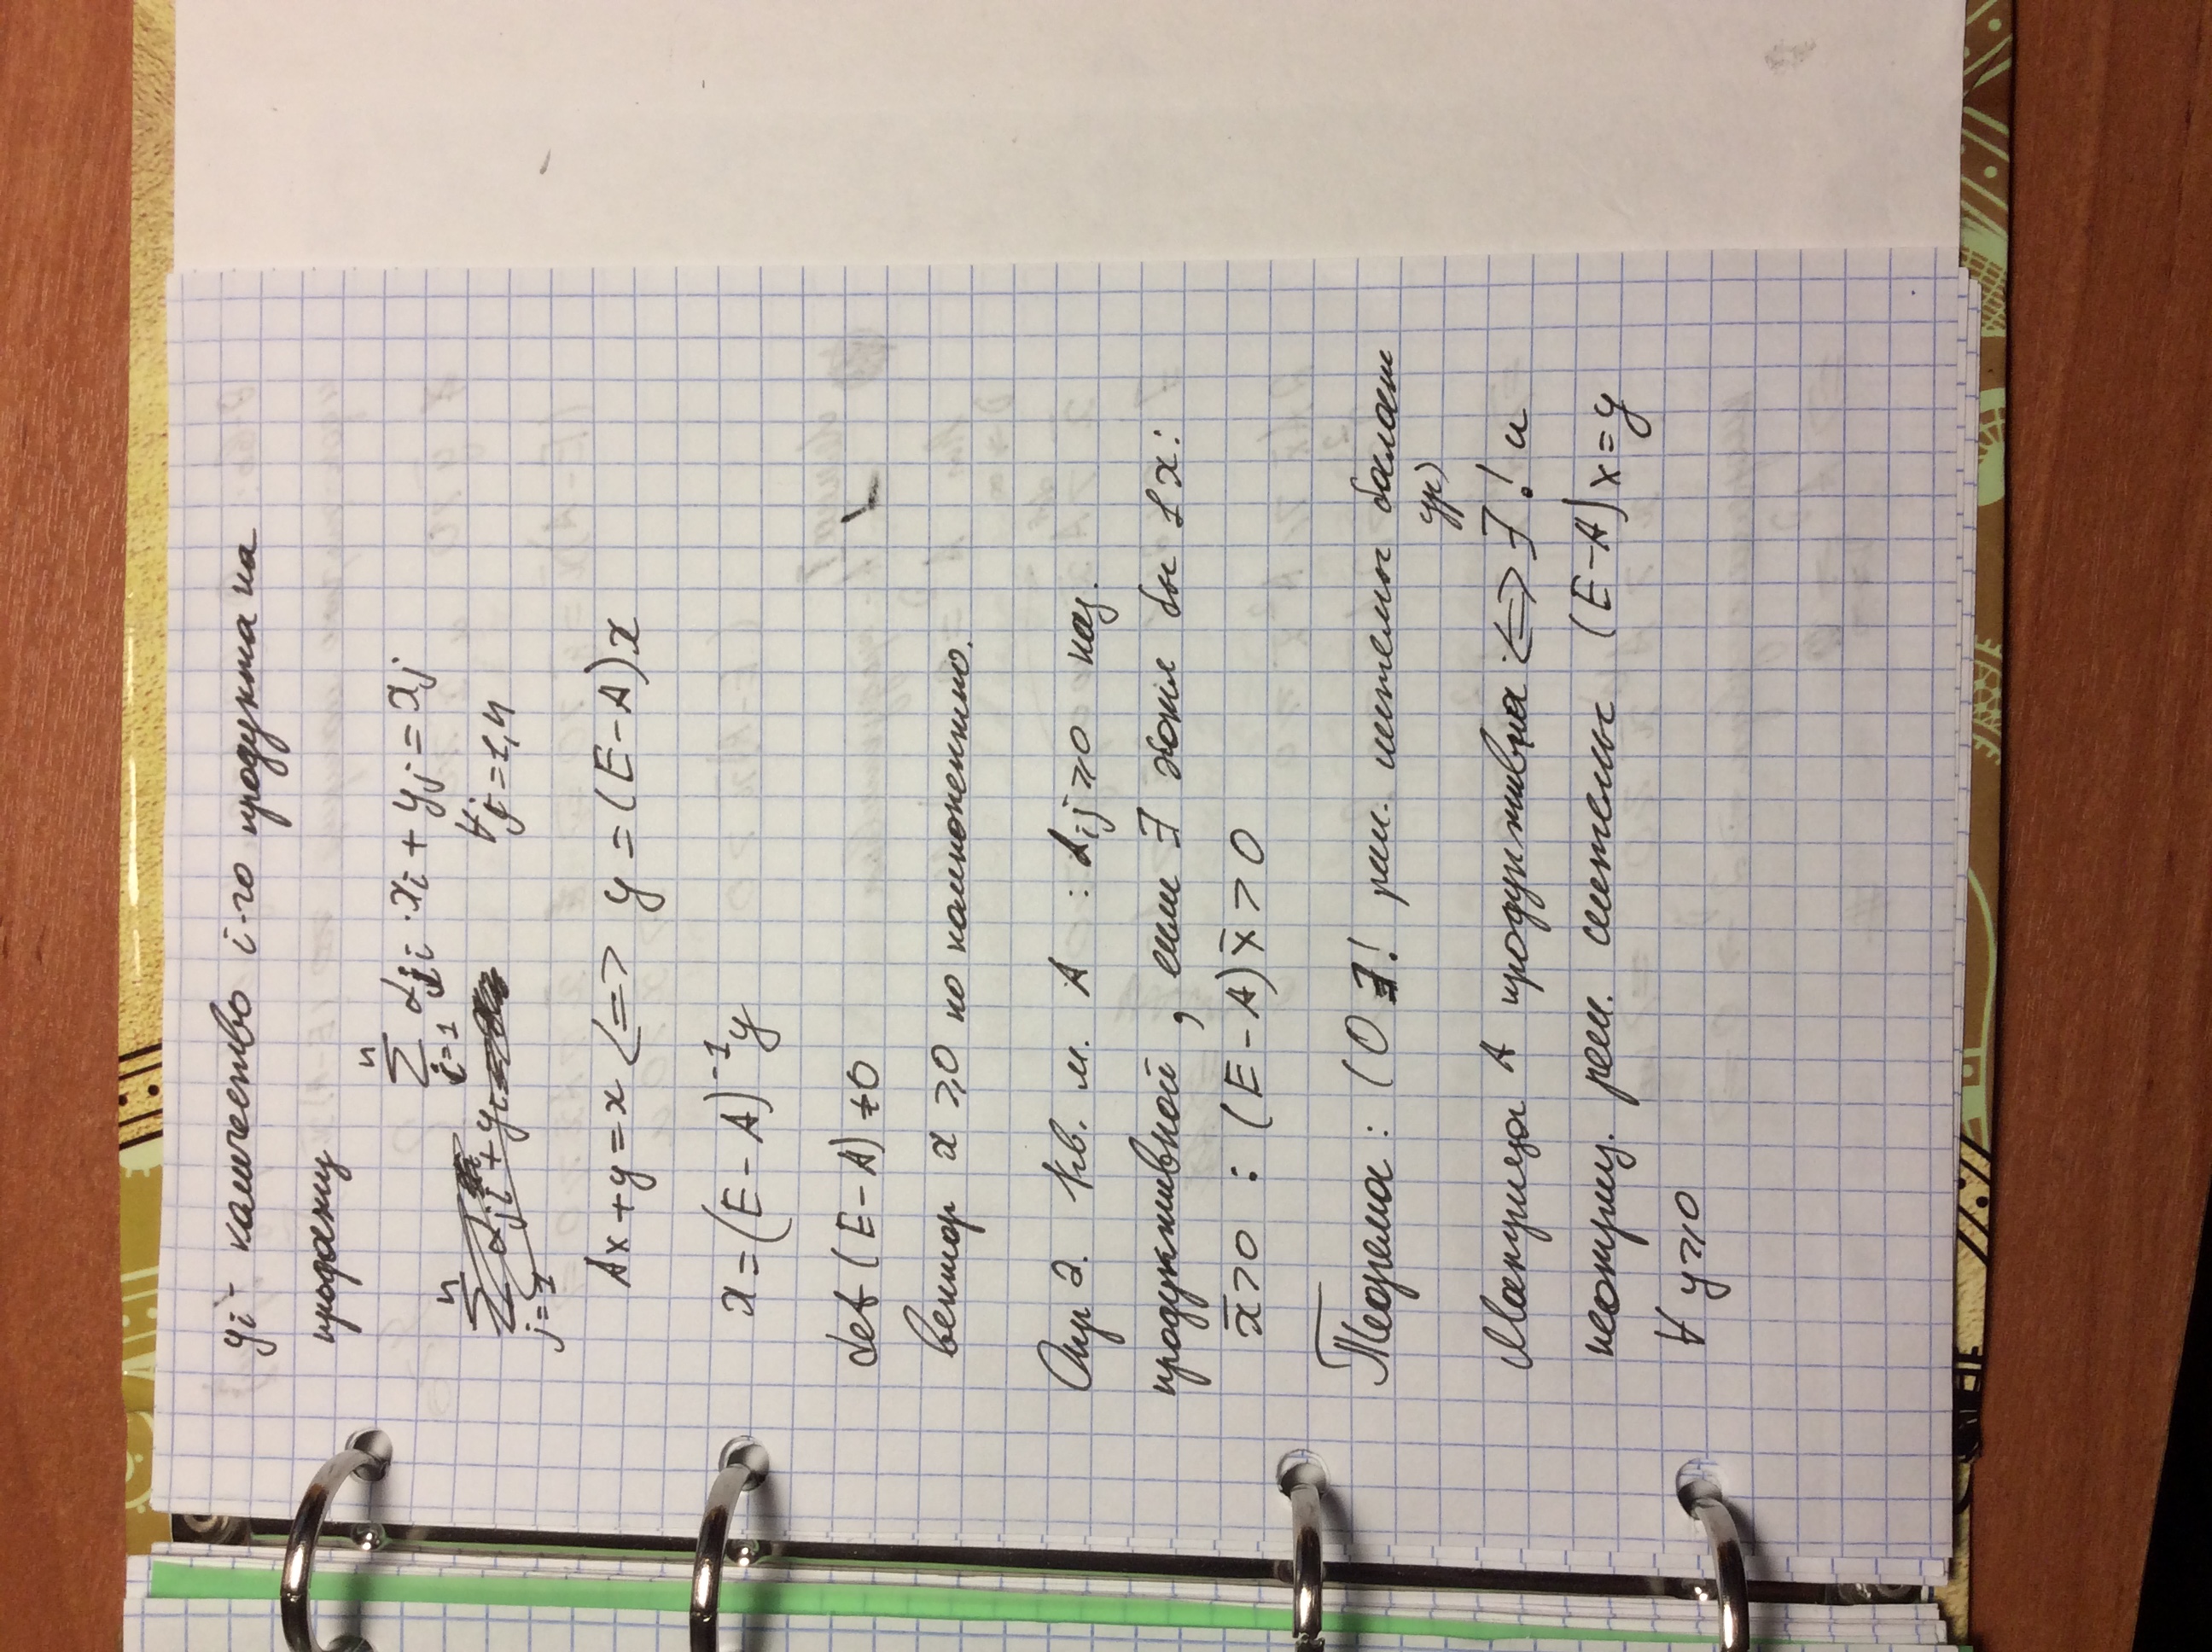 yi - количество i-го продукта на
продажу
n
∑ αji · xi + yj = xj
i=1
n
∑ αji + yi
j=1
∀j = 1,n
Ax + y = x <=> y = (E - A)x
x = (E - A)⁻¹y
det (E - A) ≠ 0
вектор x ≥ 0 по компонентно.
Опр 2. Кв. м. A : αij ≥ 0 наз.
продуктивной, если ∃ хотя бы 1 x:
x̄ > 0 : (E - A)x̄ > 0
Теорема: (О ∃! реш. системы баланс
ур)
Матрица A продуктивна <=> ∃! и
неотриц. реш. системы (E - A)x = y
∀ y ≥ 0